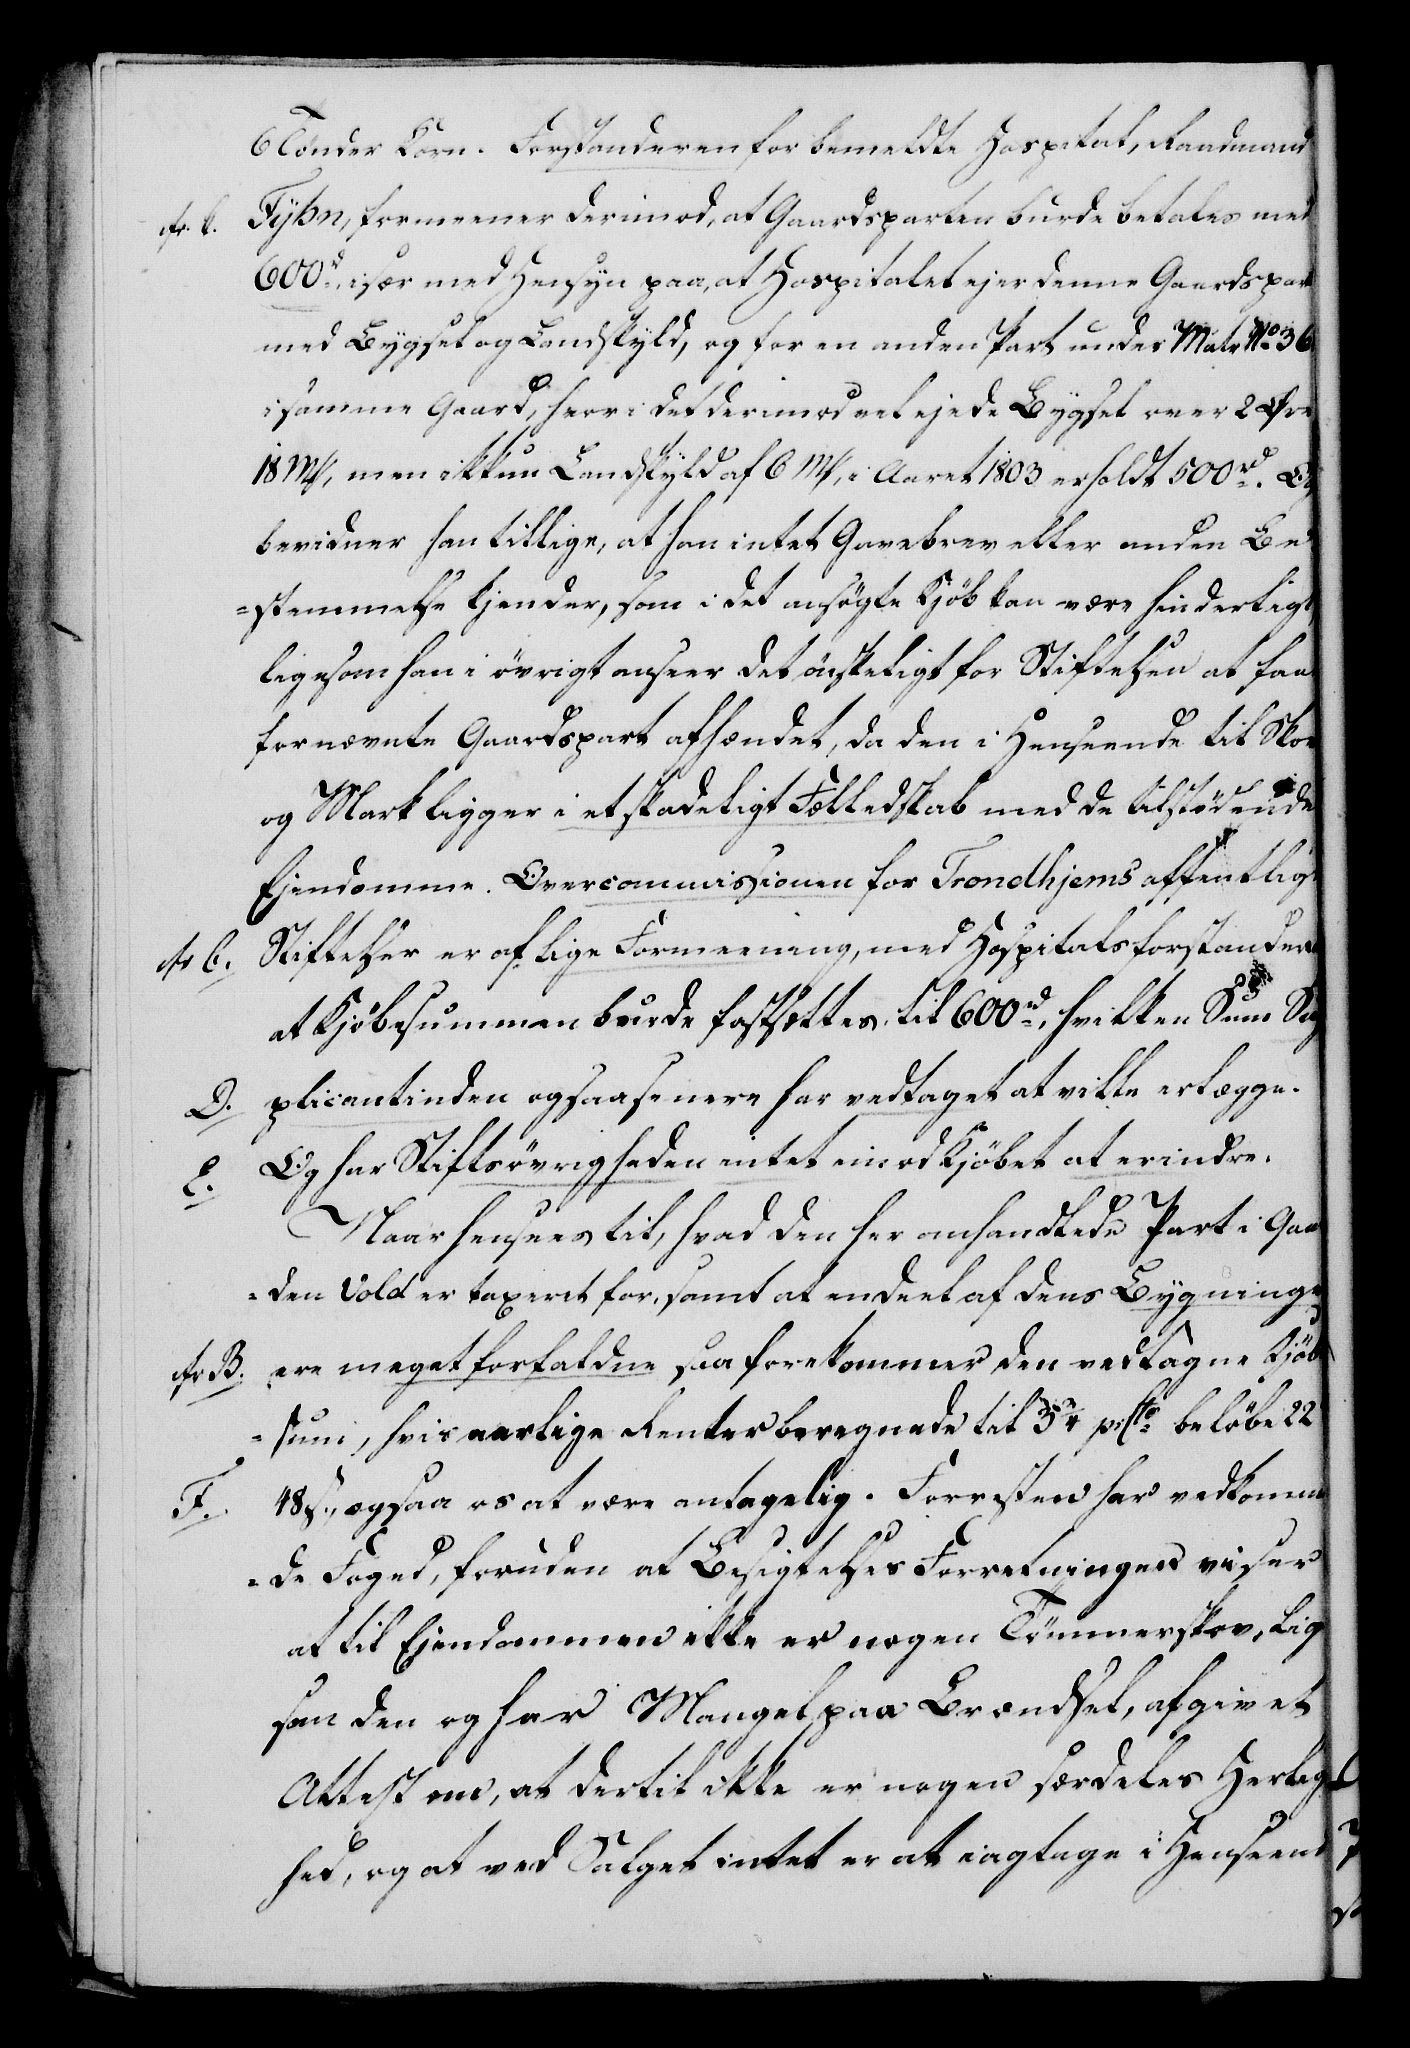 6 Tönder Korn. Forstanderen for bemeldte Hospital, Raadmand
cfr. b. Fyhn, formeener derimod, at Gaardsparten burde betales med
600 rd, især med Hensyn paa, at Hospitalet ejer denne Gaardspart
med Bygsel og Landskyld, og for en anden Part under Matr No 36
i samme Gaard, hvori det derimod vel ejede Bygsel over 2 Øre
18 Ml, men ikkun Landskyld af 6 Ml, i Aaret 1803 erholdt 500 rd. Og
bevidner han tillige, at han intet Gavebrev eller anden Be
=stemmelse kjender, som i det ansøgte Kjöb kan være hinderligt
ligesom han i övrigt anseer det önskeligt for Stiftelsen at faae
fornævnte Gaardspart afhændet, da den i Henseende til Skov
og Mark ligger i et skadeligt Fælledskab med de tilstödende
Ejendomme. Overcommissionen for Trondhjems offentlige
cfr C. Stiftelser er af lige Formeening, med Hospitalsforstanderen
at Kjöbesummen burde fastsættes til 600 rd, hvilken Sum Sup
D. plicantinden ogsaa senere har vedtaget at ville erlægge.
E. Og har Stiftsövrigheden intet imod Kjöbet at erindre.
Naar hensees til, hvad den her omhandlede Part i Gaar
=den Vold er taxeret for, samt at endeel af dens Bygninger
cfr B. ere meget forfaldne saa forekommer den vedtagne Kjöbe
=sum, hvis aarlige Renter beregnede til 3 3/4 pCto belöbe 22
F. 48 s., ogsaa os at være antagelig. Forresten har vedkommen
=de Foged, foruden at Besigtelses Forretningen viser
at til Ejendommen ikke er nogen Tömmerskov, lige
som den og har Mangel paa Brændsel, afgivet
Attest om, at dertil ikke er nogen særdeles Herlig
hed, og at ved Salget intet er at iagtage i Henseend